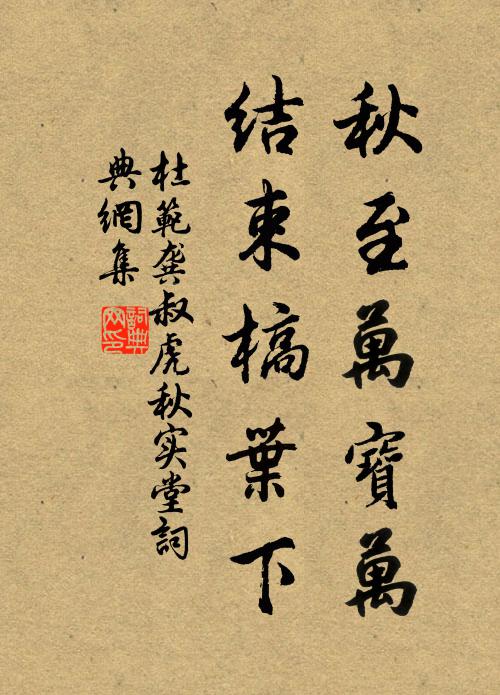 秋至萬寶萬
结束槁葉下
杜範龚叔虎秋实堂詞
典網集
詞典网印